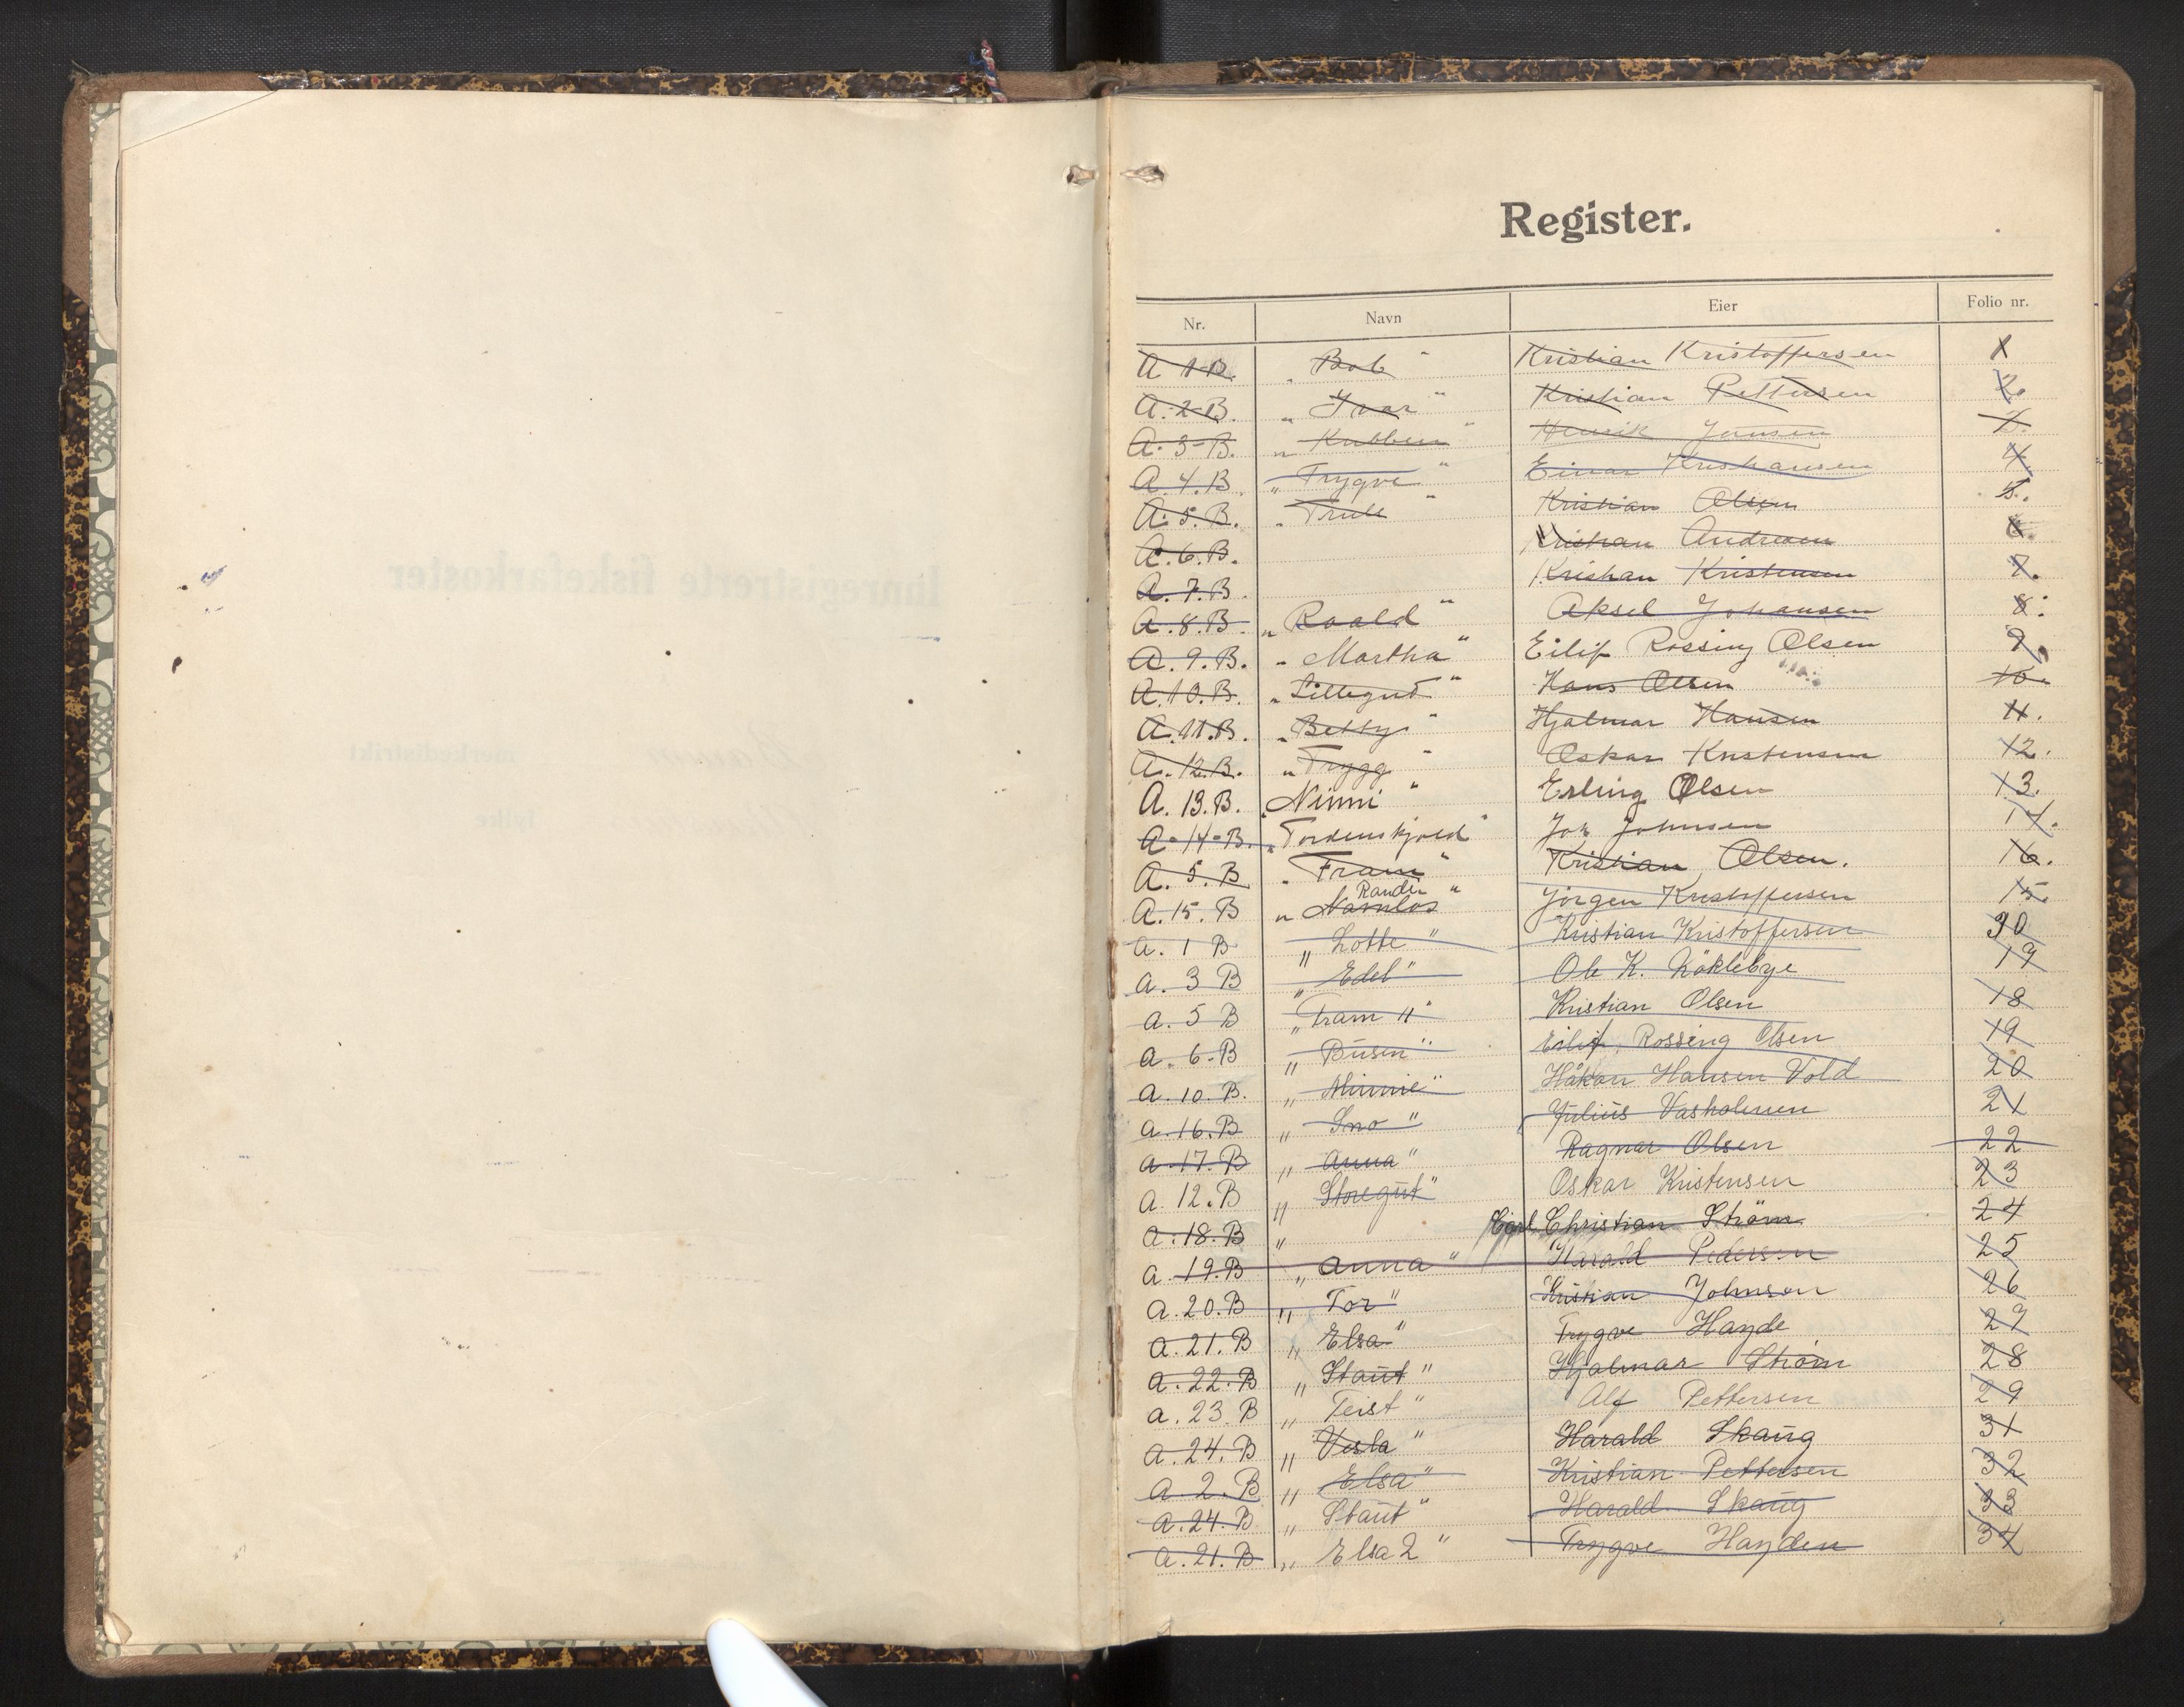 Register.
Nr. Navn Eier Folio nr.
A 1 B. „ Bob " Kristian Kristoffersen 1
A. 2 B. „ Ivar " Kristian Pettersen 2.
A. 3 - B. „ Knubben " Henrik Jensen 3.
A. 4. B. „ Trygve " Einar Kristiansen 4.
A. 5. B. „ Trull " Kristian Olsen 5.
A. 6. B. Kristian Andresen 6.
A. 7. B. Kristian Kristensen 7.
A. 8. B. „ Roald " Aksel Johansen 8.
A. 9. B. „ Martha " Eilif Rossing Olsen 9.
A. 10. B. „ Lillegut " Hans Olsen 10.
A. 11. B. „ Betty " Hjalmar Hansen 11.
A. 12. B. „ Trygg " Oskar Kristensen 12.
A. 13. B. „ Ninni " Erling Olsen 13.
A - 14 - B. „ Tordenskjold " Joh Johnsen 14.
A. 5. B „ Fram " Kristian Olsen. 16.
Randi
A. 15. B „ Navnløs " Jörgen Kristoffersen 15.
a. 1 B „ Lotte " Kristian Kristoffersen 30
a. 3 B „ Edel " Ole K. Nöklebye 17
a. 5 B „ Fram II " Kristian Olsen 18
a. 6 - B „ Busen " Eilif Rossing Olsen 19
a. 10. B. „ Minnie " Håkon Hansen Vold 20
a. 16. B „ Sno " Julius Vasholmen 21
a. 17. B „ Anna " Ragnar Olsen 22
a. 12. B „ Storegut " Oskar Kristensen 23
a. 18. B „ Carl Christian Ström 24
a. 19. B „ Anna " Harald Pedersen 25
a. 20. B „ Tor " Kristian Johnsen 26
a. 21. B „ Elsa " Trygve Hayde 27
a. 22. B „ Staut " Hjalmar Ström 28
a. 23. B „ Teist " Alf Pettersen 29
a. 24. B „ Vesla " Harald Skaug 31
a. 2. B „ Elsa " Kristian Pettersen 32
a. 24. B „ Staut " Harald Skaug 33
a. 21. B „ Elsa 2 " Trygve Hayden 34